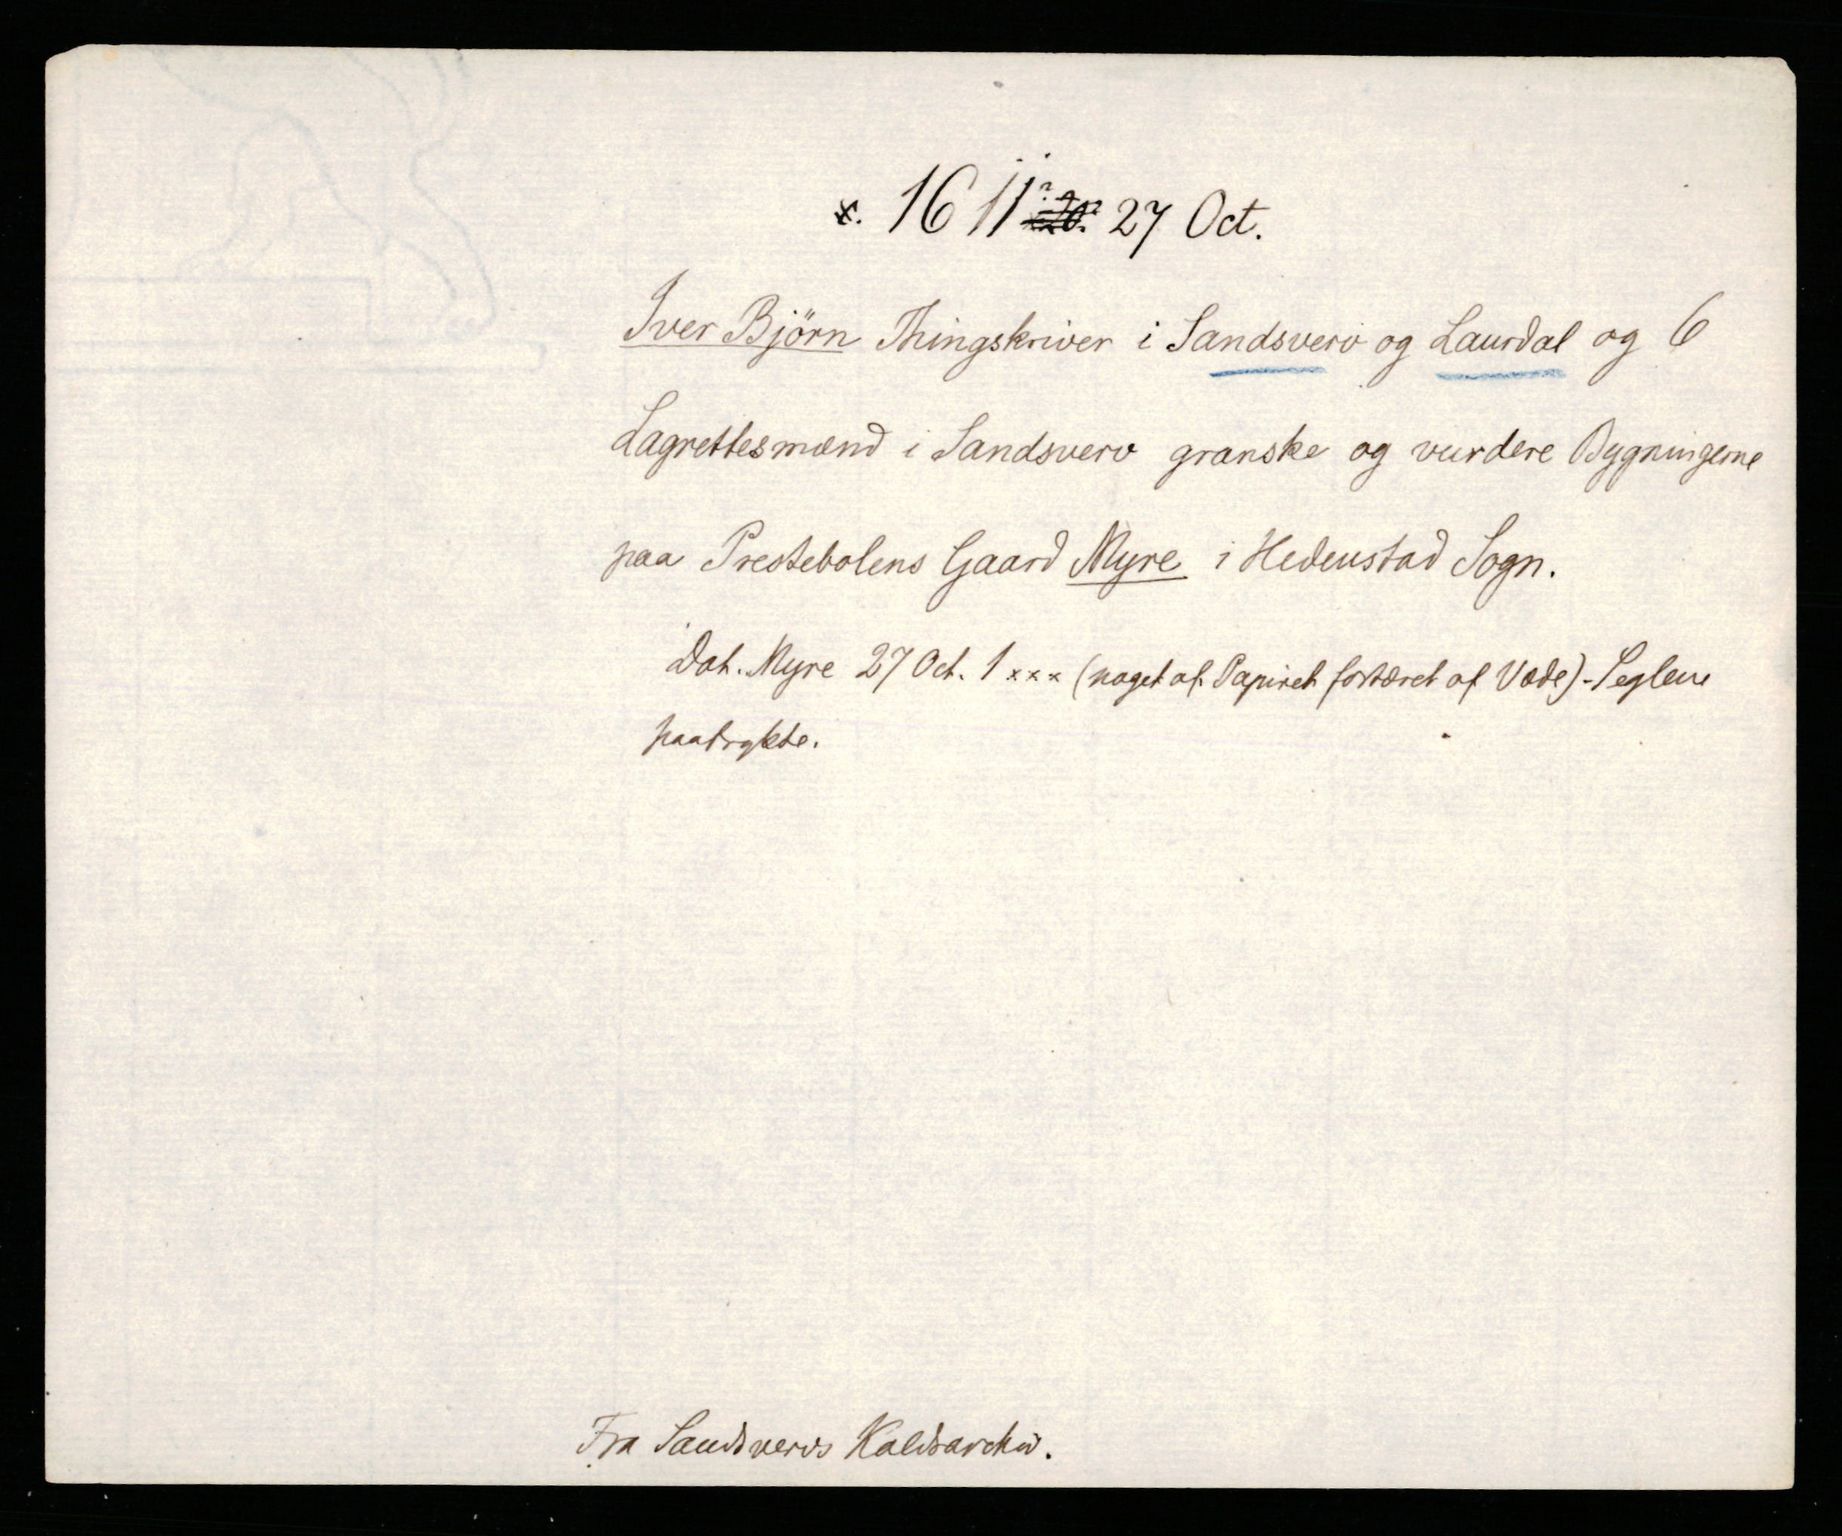 1611? 27 Oct.
Iver Björn Thingskriver i Sandsverv og Laurdal og 6
Lagrettesmænd i Sandsverv granske og vurdere Bygningerne
paa Prestebolens Gaard Myre i Hedenstad Sogn.
Dat. Myre 27 Oct. 1 xxx (noget af Papiret fortæret af Væde). Seglene
paatrykte.
Fra Sandsvervs Kaldsarchiv.